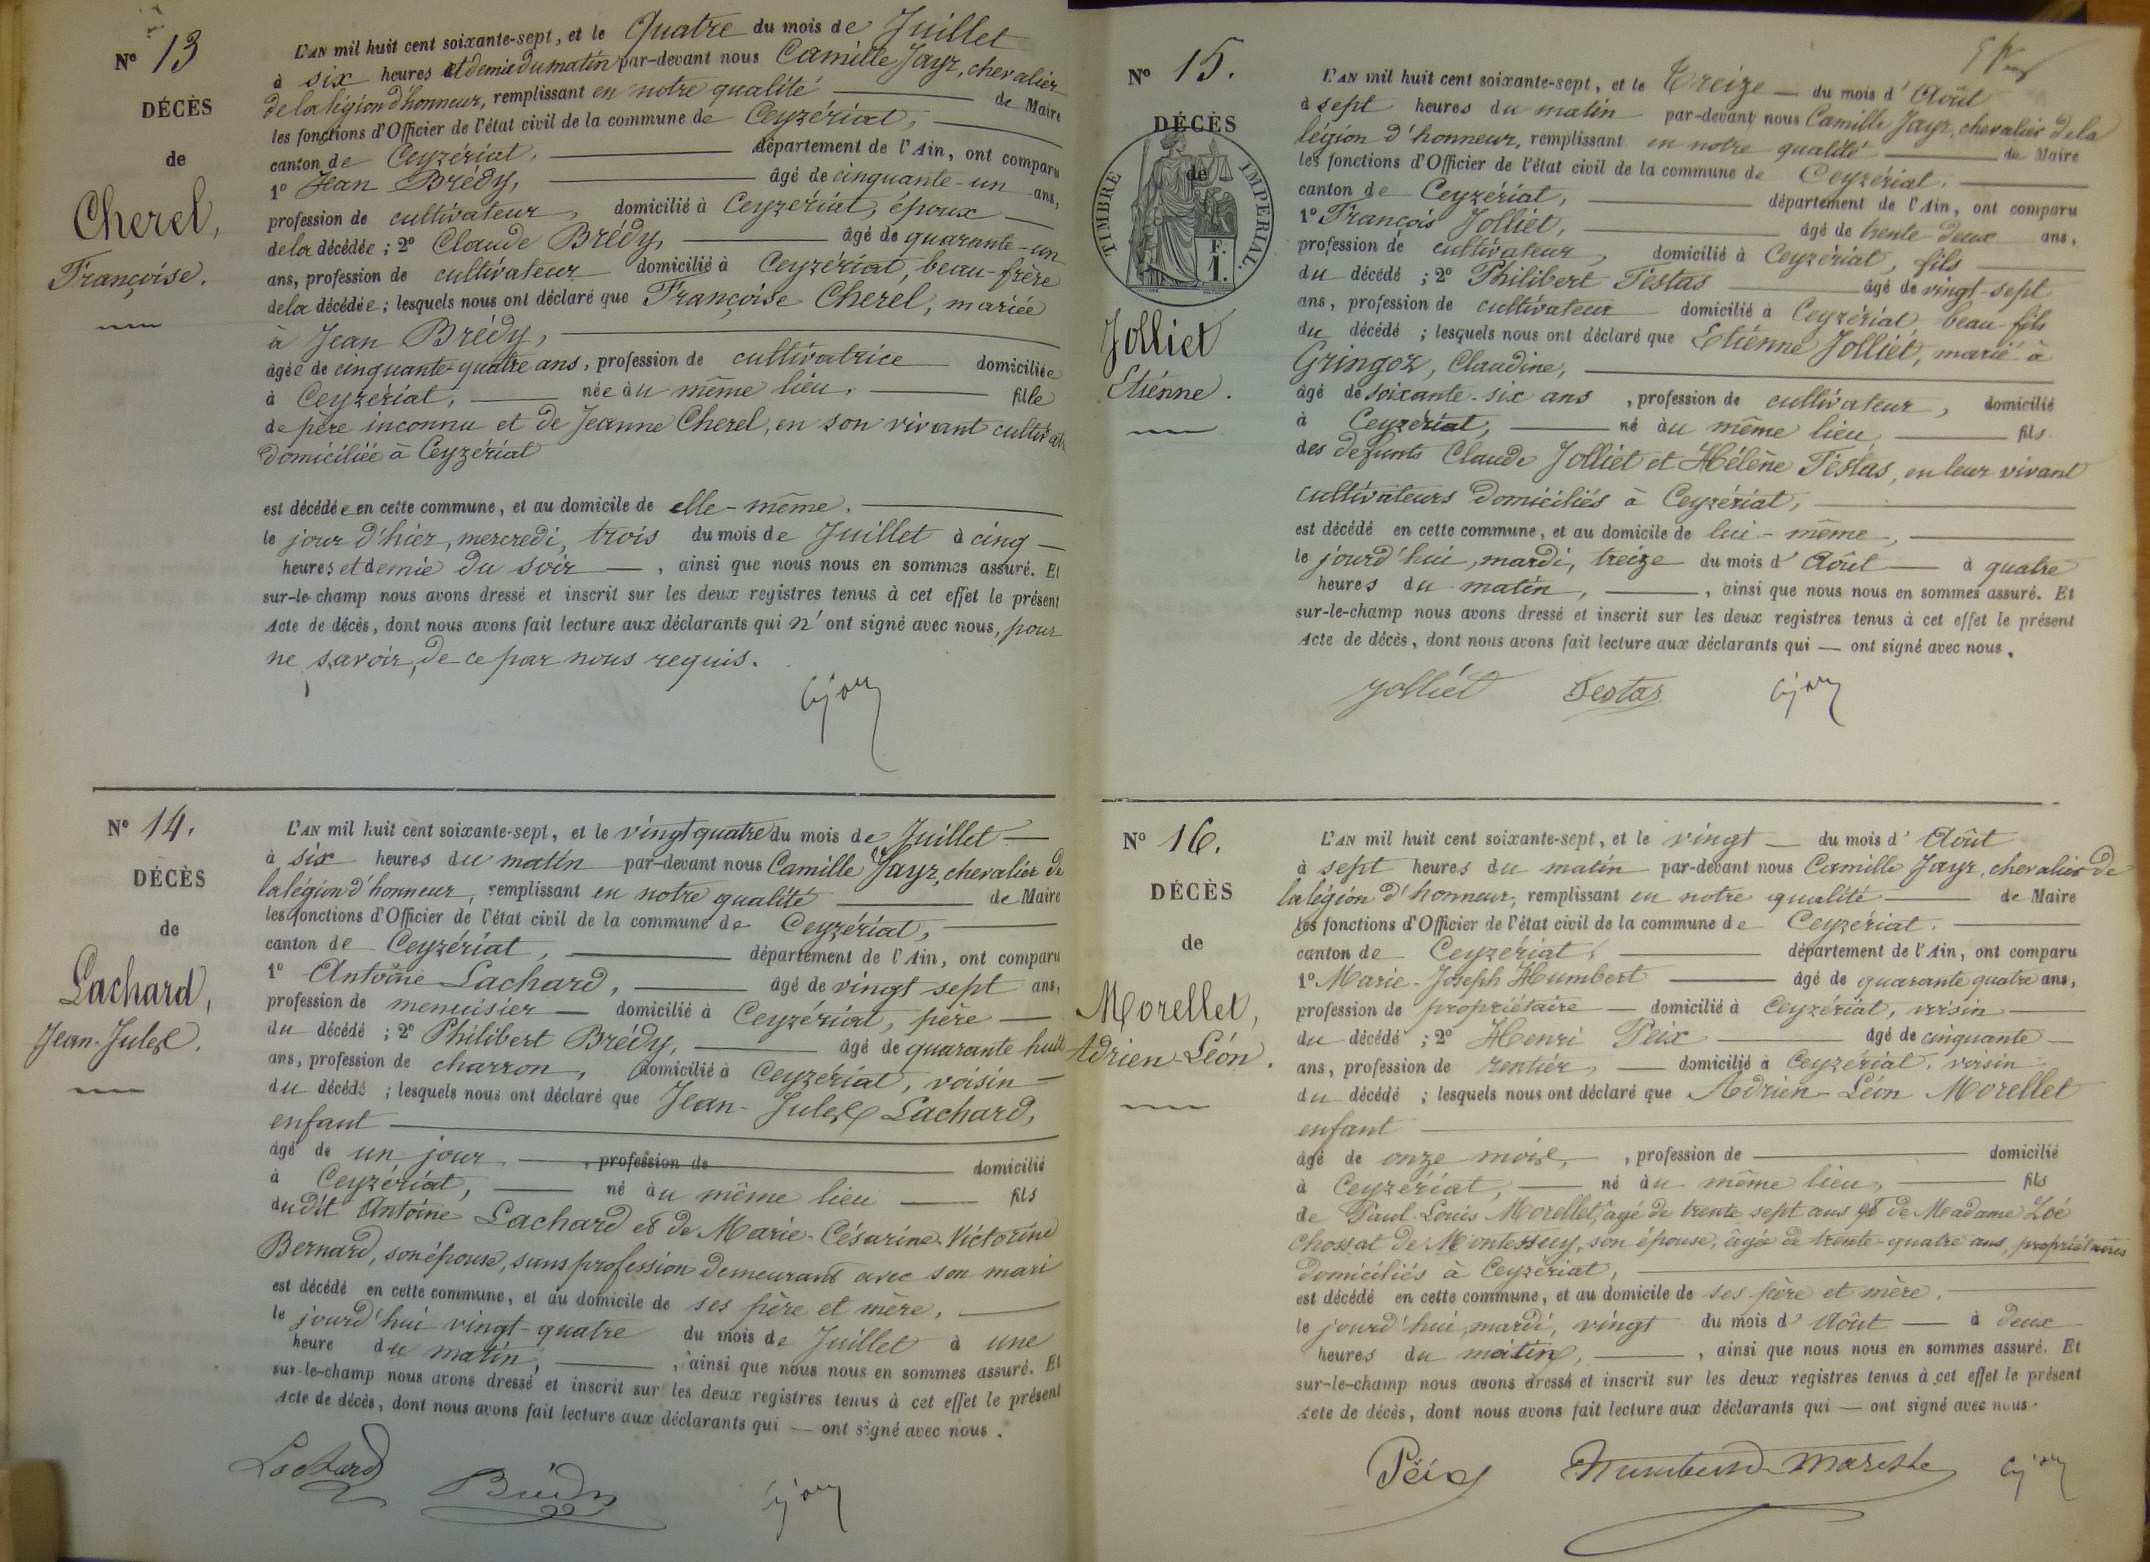 N° 13
DÉCÈS
de
Cherel,
Françoise.
L'AN mil huit cent soixante-sept, et le Quatre du mois de Juillet
à six heures et demie du matin par-devant nous Camille Jayr, chevalier
de la légion d'honneur, remplissant en notre qualité de Maire
les fonctions d'Officier de l'état civil de la commune de Ceyzériat,
canton de Ceyzériat, département de l'Ain, ont comparu
1° Jean Brédy, âgé de cinquante-un ans,
profession de cultivateur, domicilié à Ceyzériat, époux
de la décédée ; 2° Claude Brédy, âgé de quarante-un
ans, profession de cultivateur domicilié à Ceyzériat, beau-frère
de la décédée ; lesquels nous ont déclaré que Françoise Cherel, mariée
à Jean Brédy,
âgée de cinquante-quatre ans, profession de cultivatrice domiciliée
à Ceyzériat, née au même lieu, fille
de père inconnu et de Jeanne Cherel, en son vivant
domiciliée à Ceyzériat
est décédée en cette commune, et au domicile de elle-même.
le jour d'hier, mercredi, trois du mois de Juillet à cinq
heures et demie du soir, ainsi que nous nous en sommes assuré. Et
sur-le-champ nous avons dressé et inscrit sur les deux registres tenus à cet effet le présent
Acte de décès, dont nous avons fait lecture aux déclarants qui n'ont signé avec nous, pour
ne savoir, de ce par nous requis.
N° 14.
DÉCÈS
de
Lachard,
Jean-Jules.
L'AN mil huit cent soixante-sept, et le vingt quatre du mois de Juillet
à six heures du matin par-devant nous Camille Jayr, chevalier de
la légion d'honneur, remplissant en notre qualité de Maire
les fonctions d'Officier de l'état civil de la commune de Ceyzériat,
canton de Ceyzériat, département de l'Ain, ont comparu
1° Antoine Lachard, âgé de vingt sept ans,
profession de menuisier domicilié à Ceyzériat, père
du décédé ; 2° Philibert Brédy, âgé de quarante huit
ans, profession de charron, domicilié à Ceyzériat, voisin
du décédé ; lesquels nous ont déclaré que Jean-Jules Lachard,
enfant
âgé de un jour, profession de domicilié
à Ceyzériat, né au même lieu fils
dudit Antoine Lachard et de Marie-Césarine-Victorine
Bernard, son épouse, sans profession demeurant avec son mari
est décédé en cette commune, et au domicile de ses père et mère.
le jourd'hui vingt-quatre du mois de Juillet à une
heure du matin, ainsi que nous nous en sommes assuré. Et
sur-le-champ nous avons dressé et inscrit sur les deux registres tenus à cet effet le présent
Acte de décès, dont nous avons fait lecture aux déclarants qui — ont signé avec nous.
Lachard Brédy
N° 15.
DÉCÈS
de
TIMBRE IMPÉRIAL.
F.
1.
Jolliet
Etienne.
L'AN mil huit cent soixante-sept, et le Treize du mois d'Août
à sept heures du matin par-devant nous Camille Jayr, chevalier de la
légion d'honneur, remplissant en notre qualité de Maire
les fonctions d'Officier de l'état civil de la commune de Ceyzériat.
canton de Ceyzériat, département de l'Ain, ont comparu
1° François Jolliet, âgé de trente deux ans,
profession de cultivateur, domicilié à Ceyzériat, fils
du décédé ; 2° Philibert Testas âgé de vingt-sept
ans, profession de cultivateur domicilié à Ceyzériat, beau-fils
du décédé ; lesquels nous ont déclaré que Etienne Jolliet, marié à
Gringoz, Claudine,
âgé de soixante-six ans, profession de cultivateur, domicilié
à Ceyzériat, né au même lieu, fils
des defunts Claude Jolliet et Hélène Testas, en leur vivant
cultivateurs domiciliés à Ceyzériat,
est décédé en cette commune, et au domicile de lui-même,
le jourd'hui, mardi, treize du mois d'Août à quatre
heures du matin, ainsi que nous nous en sommes assuré. Et
sur-le-champ nous avons dressé et inscrit sur les deux registres tenus à cet effet le présent
Acte de décès, dont nous avons fait lecture aux déclarants qui — ont signé avec nous.
Jolliet Testas
N° 16.
DÉCÈS
de
Morellet,
Adrien-Léon.
L'AN mil huit cent soixante-sept, et le vingt du mois d'Août
à sept heures du matin par-devant nous Camille Jayr, chevalier de
la légion d'honneur, remplissant en notre qualité de Maire
les fonctions d'Officier de l'état civil de la commune de Ceyzériat.
canton de Ceyzériat, département de l'Ain, ont comparu
1° Marie-Joseph Humbert âgé de quarante quatre ans,
profession de propriétaire domicilié à Ceyzériat, voisin
du décédé ; 2° Henri Peix âgé de cinquante
ans, profession de rentier, domicilié à Ceyzériat, voisin
du décédé ; lesquels nous ont déclaré que Adrien-Léon Morellet
enfant
âgé de onze mois, profession de domicilié
à Ceyzériat, né au même lieu, fils
de Paul-Louis Morellet, âgé de trente sept ans et de Madame Zoé
Chossat de Montessuy, son épouse, âgée de trente-quatre ans, propriétaires
domiciliés à Ceyzériat,
est décédé en cette commune, et au domicile de ses père et mère.
le jourd'hui, mardi, vingt du mois d'Août à deux
heures du matin, ainsi que nous nous en sommes assuré. Et
sur-le-champ nous avons dressé et inscrit sur les deux registres tenus à cet effet le présent
Acte de décès, dont nous avons fait lecture aux déclarants qui — ont signé avec nous.
Peix